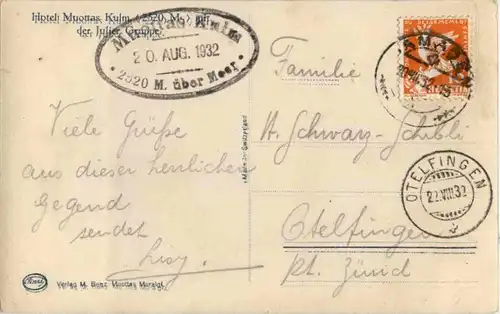 Hotel Muottas Kulm (2520 M.) mit
der Julier Gruppe.
Muottas Kulm
20. AUG. 1932
2520 M. über Meer
Viele Grüße
aus dieser herrlichen
Gegend
sendet
Lisy.
Verlag M. Benz, Muottas Muraigl
Made in Switzerland
Familie
H. Schwarz-Schibli
Otelfingen
Kt. Zürich
OTELFINGEN
22.VIII.32